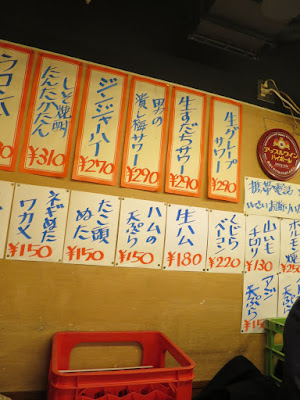 生グレープ
サワー
¥290
生すだち
サワー
¥290
男の
潰し梅サワー
¥290
ジンジャーハイ
¥270
しそ焼酎
たんたかたん
¥310
アップルワイン
ハイボール
携帯電話
山いも
千切り
¥130
くじら
ベーコン
¥220
生ハム
¥180
ハムの
天ぷら
¥150
たこ頭
ぬた
¥150
ネギぬた
ワカメ
¥150
アジ
天ぷら